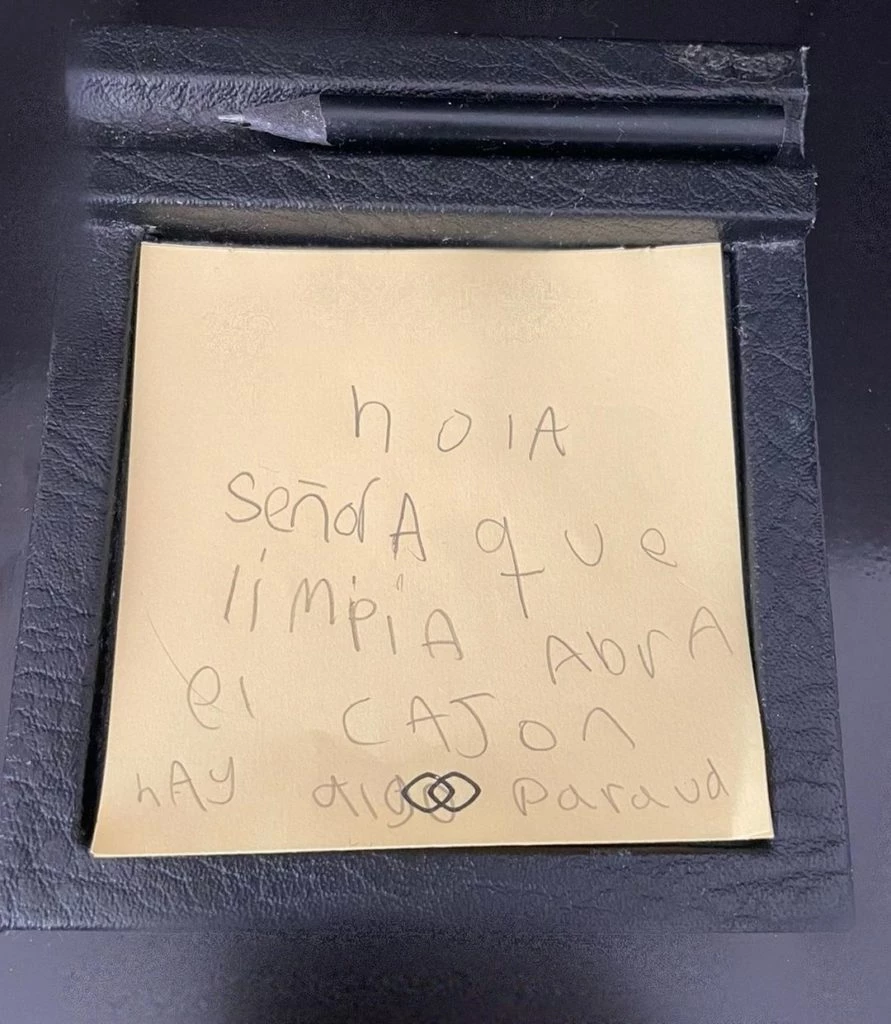 hOlA
SeñorA que
limpiA AbrA
el CAJon
hAy algo paraud